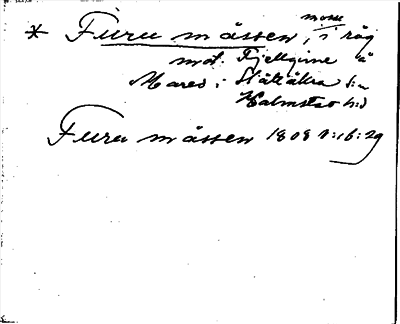 * Furu måssen, mosse, i råg
mot Fjellgine å
Mared i Slättåkra s:n
Halmstad h:d
Furu måssen 1808 1:16:29